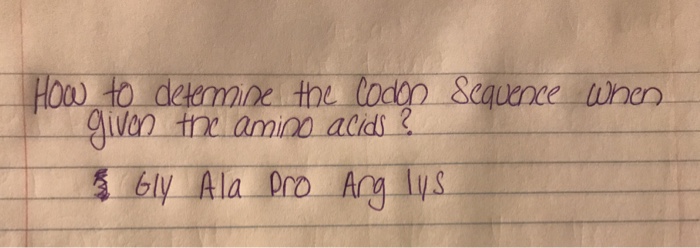 How to determine the Codon Sequence when
given the amino acids?
Gly Ala Pro Arg lys